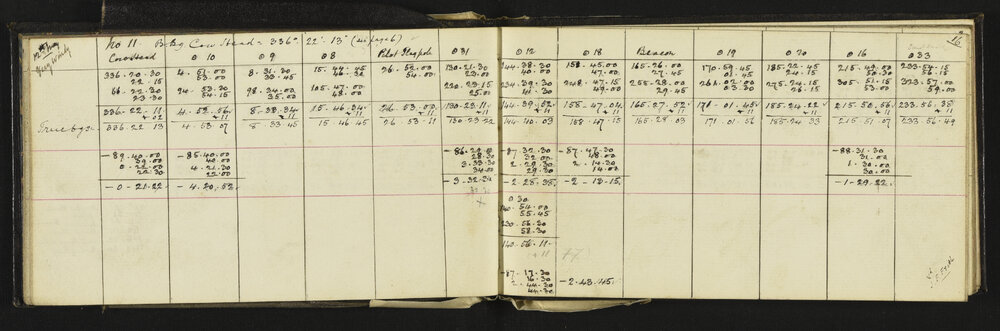 No 11. Bdg. Cow Head = 336° 22' 13" (see page 6)
12
Very windy
Cow Head ⊙ 10 ⊙ 9 ⊙ 8 Pilot Flagpole ⊙ 31 ⊙ 12 ⊙ 18 Beacon ⊙ 19 ⊙ 20 ⊙ 16 ⊙ 33
336.20.30 4.51.00 8.31.30 15.44.45 26.52.00 130.21.30 144.38.30 158.45.00 165.26.00 170.59.45 185.22.45 215.49.00 233.54.15
22.15 53.00 33.45 46.30 54.00 23.00 40.00 47.00 27.45 01.45 24.15 50.30 56.15
66.22.30 94.53.30 98.34.00 105.47.00 220.23.15 234.39.30 248.47.15 255.28.00 261.02.00 275.24.15 305.51.15 323.57.00
23.30 54.15 35.00 48.00 25.00 41.30 49.00 29.45 26.15 53.00 59.00
336.22.11 4.52.56 8.33.34 15.46.34 26.53.00 130.23.11 144.39.52 158.47.04 165.27.52 170.01.45 185.24.22 215.50.56 233.56.38
+02 +11 +11 +11 +11 +11 +11 +11 +11 +11 +11 +11
True bgs. 336.22.13 4.53.07 8.33.45 15.46.45 26.53.11 130.23.22 144.40.03 158.47.15 165.28.03 171.01.56 185.24.33 215.51.07 233.56.49
-89.40.00 -85.40.00 -86.29.00 -87.32.30 -87.47.30 -88.31.30
39.00 40.00 28.30 32.00 48.00 31.00
0.22.00 4.21.30 3.33.30 2.29.30 2.14.30 1.30.00
22.30 22.00 34.00 29.30 14.00 30.00
-0.21.22 -4.20.52 -3.32.34 -2.28.35 -2-13.15 -1.29.22
⊙ 30
140.54.00
55.45
230.56.30
58.30
140.56.11
+11
17
-87.17.30 -2.43.45
16.30
2.44.30
44.30